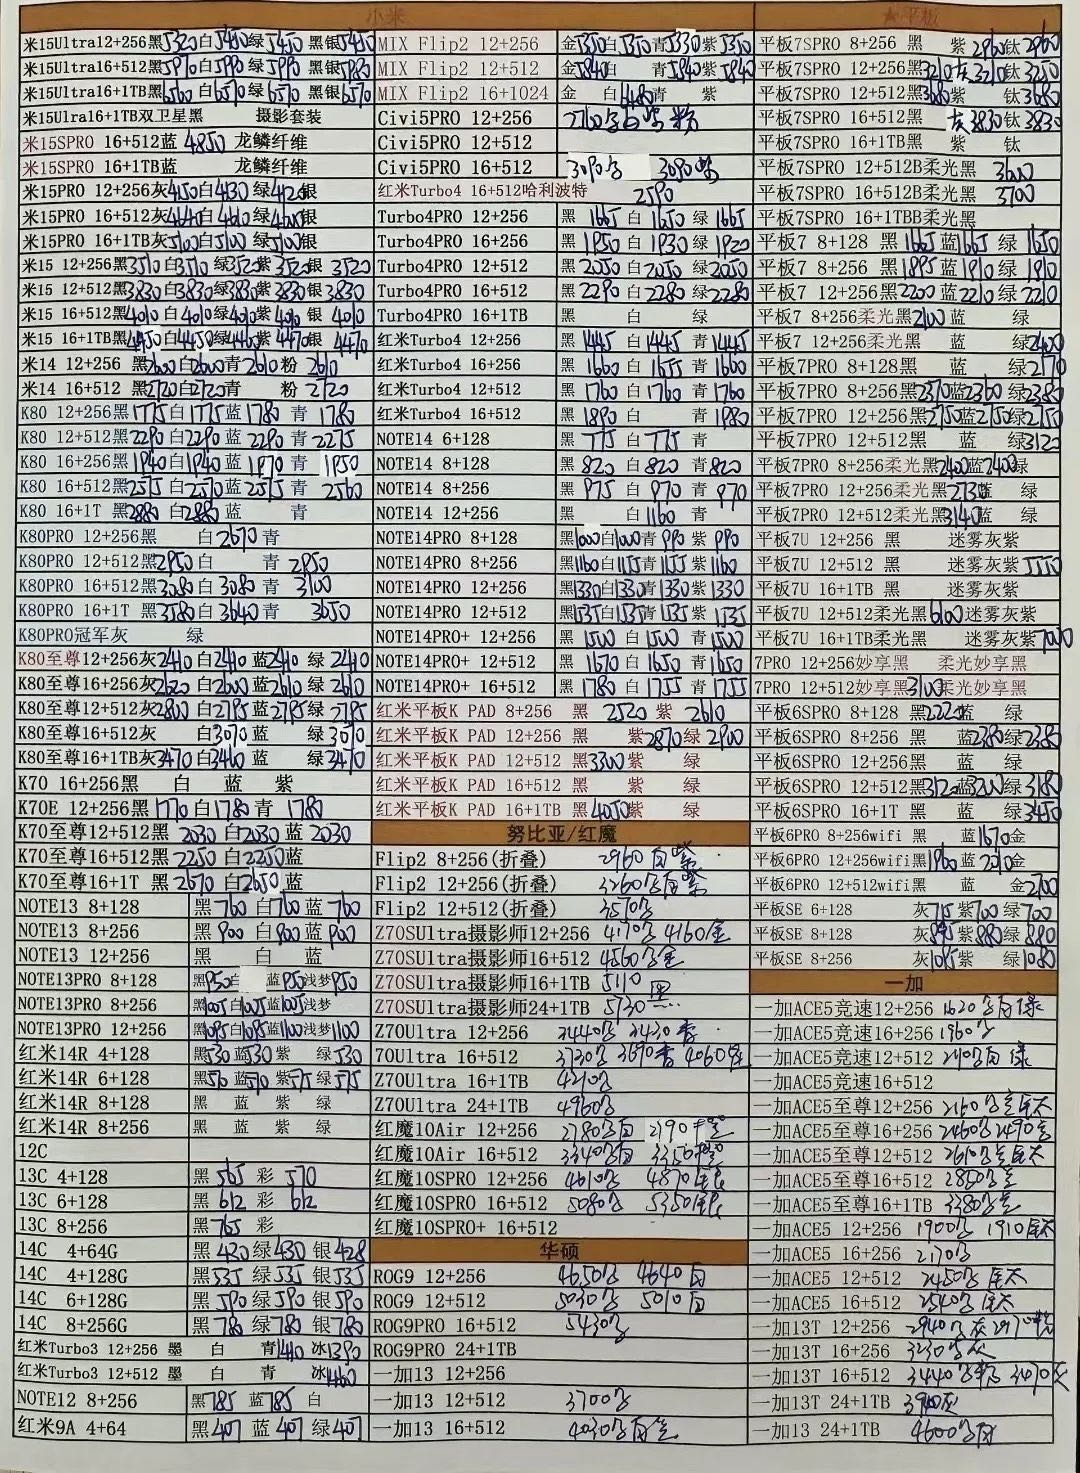 小米
米15Ultra12+256黑5320白5450绿5450 黑银5450
米15Ultra16+512黑5970白5990绿5990 黑银5980
米15Ultra16+1TB黑6560白6570绿6570 黑银6570
米15Ulra16+1TB双卫星黑 摄影套装
米15SPRO 16+512蓝 4850 龙鳞纤维
米15SPRO 16+1TB蓝 龙鳞纤维
米15PRO 12+256灰4150白4130 绿4120银
米15PRO 16+512灰4640白4610 绿4600银
米15PRO 16+1TB灰5100白5100 绿5100银
米15 12+256黑3510白3510绿3520紫3520银 3520
米15 12+512黑3830白3830绿3830紫3830银 3830
米15 16+512黑4010白4010绿4010紫4010银 4010
米15 16+1TB黑4450白4450绿4460紫4470银 4470
米14 12+256 黑2600白2600青2610粉 2610
米14 16+512 黑2720白2720青 粉 2720
K80 12+256黑1775白1775蓝 1780 青 1780
K80 12+512黑2290白2290蓝 2290 青 2275
K80 16+256黑1940白1940蓝 1970 青 1950
K80 16+512黑2575白2570蓝 2575 青 2560
K80 16+1T 黑2880 白2880蓝 青
K80PRO 12+256黑 白2670青
K80PRO 12+512黑2950白 青 2950
K80PRO 16+512黑3080白 3080 青 3100
K80PRO 16+1T 黑3580白 3640青 3650
K80PRO冠军灰 绿
K80至尊12+256灰2410 白2410 蓝2410 绿 2410
K80至尊16+256灰2620 白2600 蓝2610 绿 2610
K80至尊12+512灰2800 白2795 蓝2795绿 2795
K80至尊16+512灰 白3070蓝 绿 3070
K80至尊16+1TB灰3470白3460蓝 绿 3470
K70 16+256黑 白 蓝 紫
K70E 12+256黑 1770 白1780 青 1780
K70至尊12+512黑 2030 白2030 蓝 2030
K70至尊16+512黑 2250 白2250蓝
K70至尊16+1T 黑 2670 白2650蓝
NOTE13 8+128 黑760 白760蓝 760
NOTE13 8+256 黑900 白900蓝900
NOTE13 12+256 黑 白 蓝
NOTE13PRO 8+128 黑950白 蓝950浅梦950
NOTE13PRO 8+256 黑1005白1005蓝1005浅梦
NOTE13PRO 12+256 黑1095白1095蓝1100浅梦1100
红米14R 4+128 黑530蓝530紫 绿530
红米14R 6+128 黑570蓝570紫575绿575
红米14R 8+128 黑 蓝 紫 绿
红米14R 8+256 黑 蓝 紫 绿
12C
13C 4+128 黑 565 彩 570
13C 6+128 黑 612 彩 612
13C 8+256 黑765 彩
14C 4+64G 黑 430绿430 银428
14C 4+128G 黑535 绿535 银535
14C 6+128G 黑590绿590 银590
14C 8+256G 黑780绿780 银780
红米Turbo3 12+256 墨 白 青1410冰1390
红米Turbo3 12+512 墨 白 青 冰1460
NOTE12 8+256 黑785 蓝785 白
红米9A 4+64 黑407 蓝 407 绿407
MIX Flip2 12+256 金5350白5350青5330紫5350
MIX Flip2 12+512 金5840白 青5840紫5840
MIX Flip2 16+1024 金 白6480青 紫
Civi5PRO 12+256 2760 白紫粉
Civi5PRO 12+512
Civi5PRO 16+512 3090 3080紫
红米Turbo4 16+512哈利波特 2590
Turbo4PRO 12+256 黑 1665白1650 绿 1665
Turbo4PRO 16+256 黑 1950 白1930 绿 1920
Turbo4PRO 12+512 黑 2050白 2050 绿2050
Turbo4PRO 16+512 黑 2290 白 2280 绿2280
Turbo4PRO 16+1TB 黑 白 绿
红米Turbo4 12+256 黑1445白1445 青1445
红米Turbo4 16+256 黑 1660 白 1655 青1660
红米Turbo4 12+512 黑 1760 白1760 青 1760
红米Turbo4 16+512 黑 1890 白 青 1980
NOTE14 6+128 黑 775 白775 青
NOTE14 8+128 黑 820 白 820 青820
NOTE14 8+256 黑 975 白 970 青 970
NOTE14 12+256 黑 白1160 青
NOTE14PRO 8+128 黑1000白1000青990紫 990
NOTE14PRO 8+256 黑1160白1155青1155紫1160
NOTE14PRO 12+256 黑1330白1330青1330紫1330
NOTE14PRO 12+512 黑1535白1535青1535紫1535
NOTE14PRO+ 12+256 黑 1500 白1500 青1500
NOTE14PRO+ 12+512 黑 1670 白 1650 青1650
NOTE14PRO+ 16+512 黑 1780 白 1755 青1755
红米平板K PAD 8+256 黑 2520 紫 2610
红米平板K PAD 12+256 黑 紫2870绿 2900
红米平板K PAD 12+512 黑3300紫 绿
红米平板K PAD 16+512 黑 紫 绿
红米平板K PAD 16+1TB 黑4050紫 绿
努比亚/红魔
Flip2 8+256(折叠) 2960 白紫
Flip2 12+256(折叠)
Flip2 12+512(折叠)
Z70SUltra摄影师12+256 4170 4160
Z70SUltra摄影师16+512 4560
Z70SUltra摄影师16+1TB 5110
Z70SUltra摄影师24+1TB 5730 黑
Z70Ultra 12+256 3440 3430
70Ultra 16+512 3730 3690 4060
Z70Ultra 16+1TB
Z70Ultra 24+1TB 4960
红魔10Air 12+256 2780 2790
红魔10Air 16+512 3340 3350
红魔10SPRO 12+256 4610 4870
红魔10SPRO 16+512 5080 5350
红魔10SPRO+ 16+512
华硕
ROG9 12+256 4650 4640白
ROG9 12+512 5030 5010白
ROG9PRO 16+512 5430
ROG9PRO 24+1TB
一加13 12+256
一加13 12+512 3700
一加13 16+512 4030
★平板
平板7SPRO 8+256 黑 紫 2960钛2960
平板7SPRO 12+256黑3210灰3210钛3250
平板7SPRO 12+512黑3680紫 钛3680
平板7SPRO 16+512黑 灰3830钛3830
平板7SPRO 16+1TB黑 紫 钛
平板7SPRO 12+512B柔光黑 3600
平板7SPRO 16+512B柔光黑 3700
平板7SPRO 16+1TBB柔光黑
平板7 8+128 黑1665蓝1665 绿 1650
平板7 8+256 黑1895蓝1910 绿 1910
平板7 12+256黑2200蓝2210绿 2210
平板7 8+256柔光黑2100蓝 绿
平板7 12+256柔光黑 蓝 绿2400
平板7PRO 8+128黑 蓝 绿2170
平板7PRO 8+256黑2370蓝2360绿2380
平板7PRO 12+256黑2750蓝2750绿2750
平板7PRO 12+512黑 蓝 绿3120
平板7PRO 8+256柔光黑2400蓝2400绿
平板7PRO 12+256柔光黑2730蓝 绿
平板7PRO 12+512柔光黑3140蓝 绿
平板7U 12+256 黑 迷雾灰紫
平板7U 12+512 黑 迷雾灰紫5550
平板7U 16+1TB 黑 迷雾灰紫
平板7U 12+512柔光黑6100迷雾灰紫
平板7U 16+1TB柔光黑 迷雾灰紫7000
7PRO 12+256妙享黑 柔光妙享黑
7PRO 12+512妙享黑3100柔光妙享黑
平板6SPRO 8+128 黑2220蓝 绿
平板6SPRO 8+256 黑 蓝2380绿2380
平板6SPRO 12+256黑 蓝 绿
平板6SPRO 12+512黑3120蓝3200绿3180
平板6SPRO 16+1T 黑 蓝 绿3450
平板6PRO 8+256wifi 黑 蓝1670金
平板6PRO 12+256wifi黑1960蓝2010金
平板6PRO 12+512wifi黑 蓝 金2700
平板SE 6+128 灰715紫700绿700
平板SE 8+128 灰895紫880绿880
平板SE 8+256 灰1095紫 绿1080
一加
一加ACE5竞速12+256 1620 白绿
一加ACE5竞速16+256 1960
一加ACE5竞速12+512 白绿
一加ACE5竞速16+512
一加ACE5至尊12+256 2160 钛
一加ACE5至尊16+256 2460 2490
一加ACE5至尊12+512 2610 钛
一加ACE5至尊16+512 2850
一加ACE5至尊16+1TB 3380
一加ACE5 12+256 1900 1910 钛
一加ACE5 16+256 2170
一加ACE5 12+512 2450 钛
一加ACE5 16+512 2540 钛
一加13T 12+256 2940 灰2930
一加13T 16+256 3230 灰
一加13T 16+512 3440 3470灰
一加13T 24+1TB 3940灰
一加13 24+1TB 4600 白